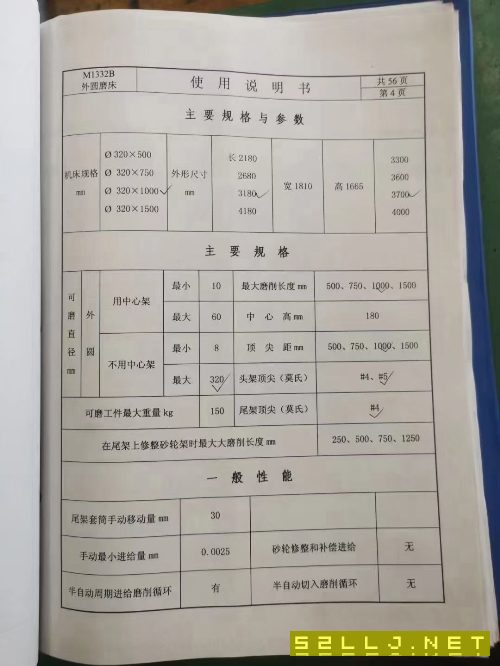 M1332B
外圆磨床
使用说明书
共 56 页
第 4 页
主要规格与参数
机床规格
mm
Ø 320×500
Ø 320×750
Ø 320×1000
Ø 320×1500
外形尺寸
mm
长 2180
2680
3180
4180
宽 1810
高 1665
3300
3600
3700
4000
主要规格
可磨直径mm
外圆
用中心架
最小
10
最大磨削长度 mm
500、750、1000、1500
最大
60
中心高 mm
180
不用中心架
最小
8
顶尖距 mm
500、750、1000、1500
最大
320
头架顶尖（莫氏）
#4、#5
可磨工件最大重量 kg
150
尾架顶尖（莫氏）
#4
在尾架上修整砂轮架时最大大磨削长度 mm
250、500、750、1250
一般性能
尾架套筒手动移动量 mm
30
手动最小进给量 mm
0.0025
砂轮修整和补偿进给
无
半自动周期进给磨削循环
有
半自动切入磨削循环
无
52LLJ.NET